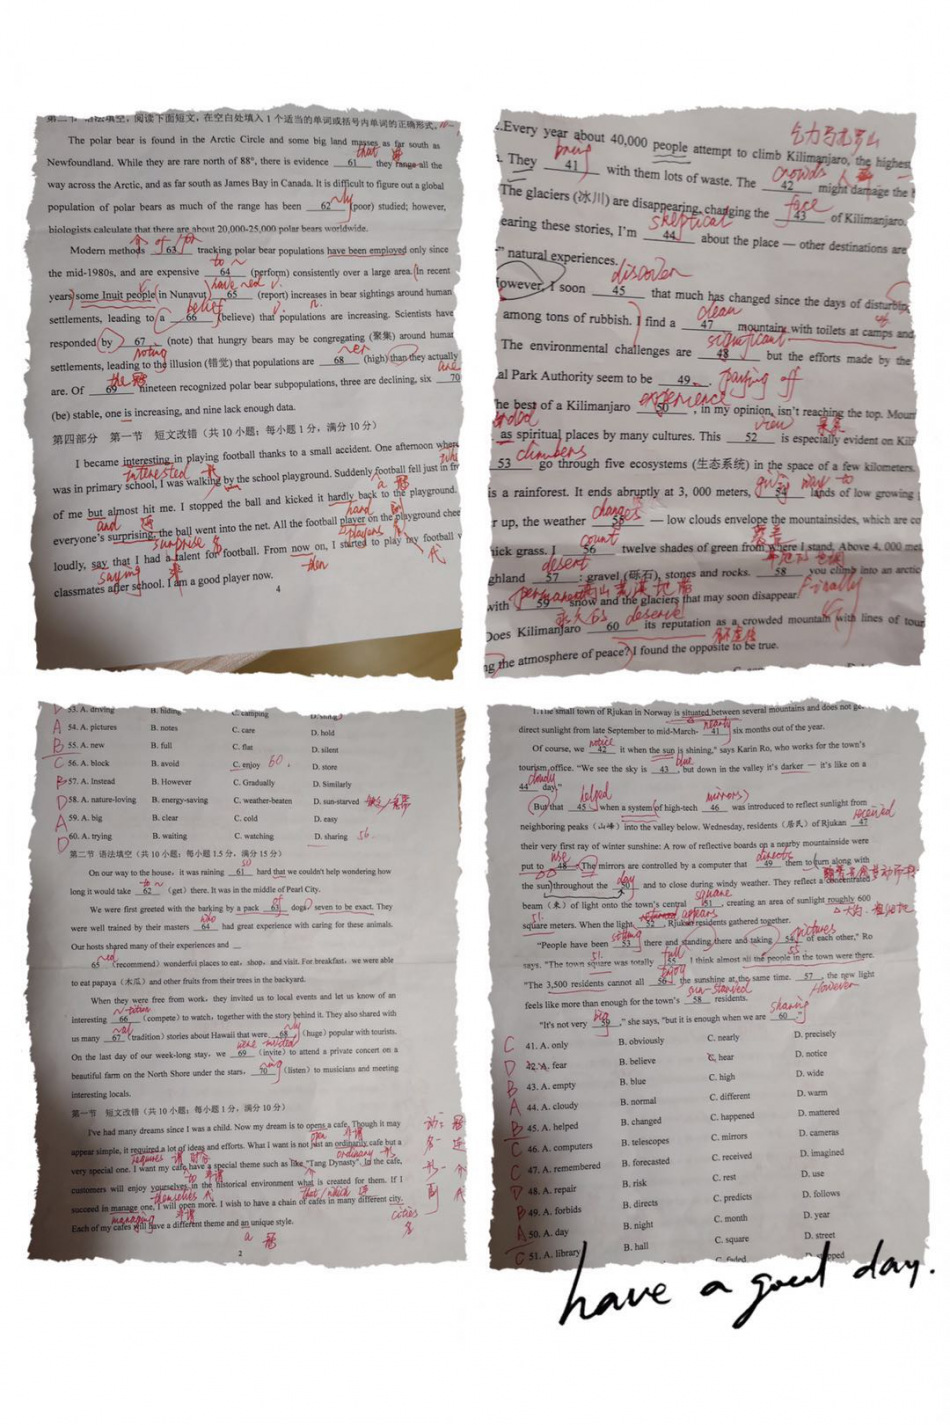 第二节 语法填空，阅读下面短文，在空白处填入1个适当的单词或括号内单词的正确形式。
The polar bear is found in the Arctic Circle and some big land masses as far south as
that
Newfoundland. While they are rare north of 88°, there is evidence 61 they range all the
way across the Arctic, and as far south as James Bay in Canada. It is difficult to figure out a global
population of polar bears as much of the range has been 62 (poor) studied; however,
biologists calculate that there are about 20,000-25,000 polar bears worldwide.
of / for
Modern methods 63 tracking polar bear populations have been employed only since
to ~
the mid-1980s, and are expensive 64 (perform) consistently over a large area. In recent
have ~ed
years some Inuit people in Nunavut 65 (report) increases in bear sightings around human
belief
settlements, leading to a 66 (believe) that populations are increasing. Scientists have
responded by 67 (note) that hungry bears may be congregating (聚集) around human
noting
settlements, leading to the illusion (错觉) that populations are 68 (high) than they actually
the
are. Of 69 nineteen recognized polar bear subpopulations, three are declining, six 70
(be) stable, one is increasing, and nine lack enough data.
第四部分 第一节 短文改错（共10小题；每小题1分，满分10分）
I became interesting in playing football thanks to a small accident. One afternoon when
interested
was in primary school, I was walking by the school playground. Suddenly football fell just in fr
of me but almost hit me. I stopped the ball and kicked it hardly back to the playground.
and hard
everyone's surprising, the ball went into the net. All the football player on the playground chee
surprise players
loudly, say that I had a talent for football. From now on, I started to play my football v
saying then
classmates after school. I am a good player now.
4
乞力马扎罗山
Every year about 40,000 people attempt to climb Kilimanjaro, the highest
bring
They 41 with them lots of waste. The 42 might damage the
crowds
The glaciers (冰川) are disappearing, changing the 43 of Kilimanjaro.
face
skeptical
earing these stories, I'm 44 about the place — other destinations are
" natural experiences.
discover
owever, I soon 45 that much has changed since the days of disturbing
clean
among tons of rubbish. I find a 47 mountain with toilets at camps and
significant
The environmental challenges are 48 but the efforts made by the
al Park Authority seem to be 49. paying off
experience
he best of a Kilimanjaro 50, in my opinion, isn't reaching the top. Moun
view
as spiritual places by many cultures. This 52 is especially evident on Kili
climbers
53 go through five ecosystems (生态系统) in the space of a few kilometers.
giving way to
is a rainforest. It ends abruptly at 3, 000 meters, 54 lands of low growing
changes
r up, the weather 55 — low clouds envelope the mountainsides, which are co
count
hick grass. I 56 twelve shades of green from where I stand. Above 4, 000 met
desert
ghland 57 : gravel (砾石), stones and rocks. 58 you climb into an arctic
permanent
with 59 snow and the glaciers that may soon disappear. Finally
永久的 deserve
Does Kilimanjaro 60 its reputation as a crowded mountain with lines of tour
ng the atmosphere of peace? I found the opposite to be true.
53. A. driving B. hiding C. camping
A 54. A. pictures B. notes C. care D. hold
B 55. A. new B. full C. flat D. silent
C 56. A. block B. avoid C. enjoy 60. D. store
B 57. A. Instead B. However C. Gradually D. Similarly
D 58. A. nature-loving B. energy-saving C. weather-beaten D. sun-starved
A 59. A. big B. clear C. cold D. easy
D 60. A. trying B. waiting C. watching D. sharing 56
第二节 语法填空（共10小题；每小题1.5分，满分15分）
so
On our way to the house, it was raining 61 hard that we couldn't help wondering how
to ~
long it would take 62 (get) there. It was in the middle of Pearl City.
of
We were first greeted with the barking by a pack 63 dogs seven to be exact. They
who
were well trained by their masters 64 had great experience with caring for these animals.
Our hosts shared many of their experiences and
65 (recommend) wonderful places to eat, shop, and visit. For breakfast, we were able
to eat papaya (木瓜) and other fruits from their trees in the backyard.
When they were free from work, they invited us to local events and let us know of an
interesting 66 (compete) to watch, together with the story behind it. They also shared with
us many 67 (tradition) stories about Hawaii that were 68 (huge) popular with tourists.
were invited
On the last day of our week-long stay, we 69 (invite) to attend a private concert on a
beautiful farm on the North Shore under the stars, 70 (listen) to musicians and meeting
interesting locals.
第一节 短文改错（共10小题；每小题1分，满分10分）
I've had many dreams since I was a child. Now my dream is to opens a cafe. Though it may
open
appear simple, it required a lot of ideas and efforts. What I want is not just an ordinarily cafe but a
requires ordinary
very special one. I want my cafe have a special theme such as like "Tang Dynasty". In the cafe,
to
customers will enjoy yourselves in the historical environment what is created for them. If I
themselves that/which
succeed in manage one, I will open more. I wish to have a chain of cafes in many different city.
managing cities
Each of my cafes will have a different theme and an unique style.
a
2
1. The small town of Rjukan in Norway is situated between several mountains and does not ge
nearly
direct sunlight from late September to mid-March- 41 six months out of the year.
notice
Of course, we 42 it when the sun is shining," says Karin Ro, who works for the town's
blue
tourism office. "We see the sky is 43, but down in the valley it's darker — it's like on a
cloudy
44 day."
helped mirrors
But that 45 when a system of high-tech 46 was introduced to reflect sunlight from
received
neighboring peaks (山峰) into the valley below. Wednesday, residents (居民) of Rjukan 47
their very first ray of winter sunshine: A row of reflective boards on a nearby mountainside were
use directs
put to 48. The mirrors are controlled by a computer that 49 them to turn along with
day
the sun throughout the 50 and to close during windy weather. They reflect a concentrated
square
beam (束) of light onto the town's central 51, creating an area of sunlight roughly 600
appears
square meters. When the light 52, Rjukan residents gathered together.
sitting pictures
"People have been 53 there and standing there and taking 54 of each other," Ro
full
says. "The town square was totally 55. I think almost all the people in the town were there.
enjoy
"The 3,500 residents cannot all 56 the sunshine at the same time. 57, the new light
sun-starved However
feels like more than enough for the town's 58 residents.
big sharing
"It's not very 59," she says, "but it is enough when we are 60."
C 41. A. only B. obviously C. nearly D. precisely
D 42. A. fear B. believe C. hear D. notice
B 43. A. empty B. blue C. high D. wide
A 44. A. cloudy B. normal C. different D. warm
B 45. A. helped B. changed C. happened D. mattered
C 46. A. computers B. telescopes C. mirrors D. cameras
C 47. A. remembered B. forecasted C. received D. imagined
D 48. A. repair B. risk C. rest D. use
B 49. A. forbids B. directs C. predicts D. follows
A 50. A. day B. night C. month D. year
C 51. A. library B. hall C. square D. street
have a good day.